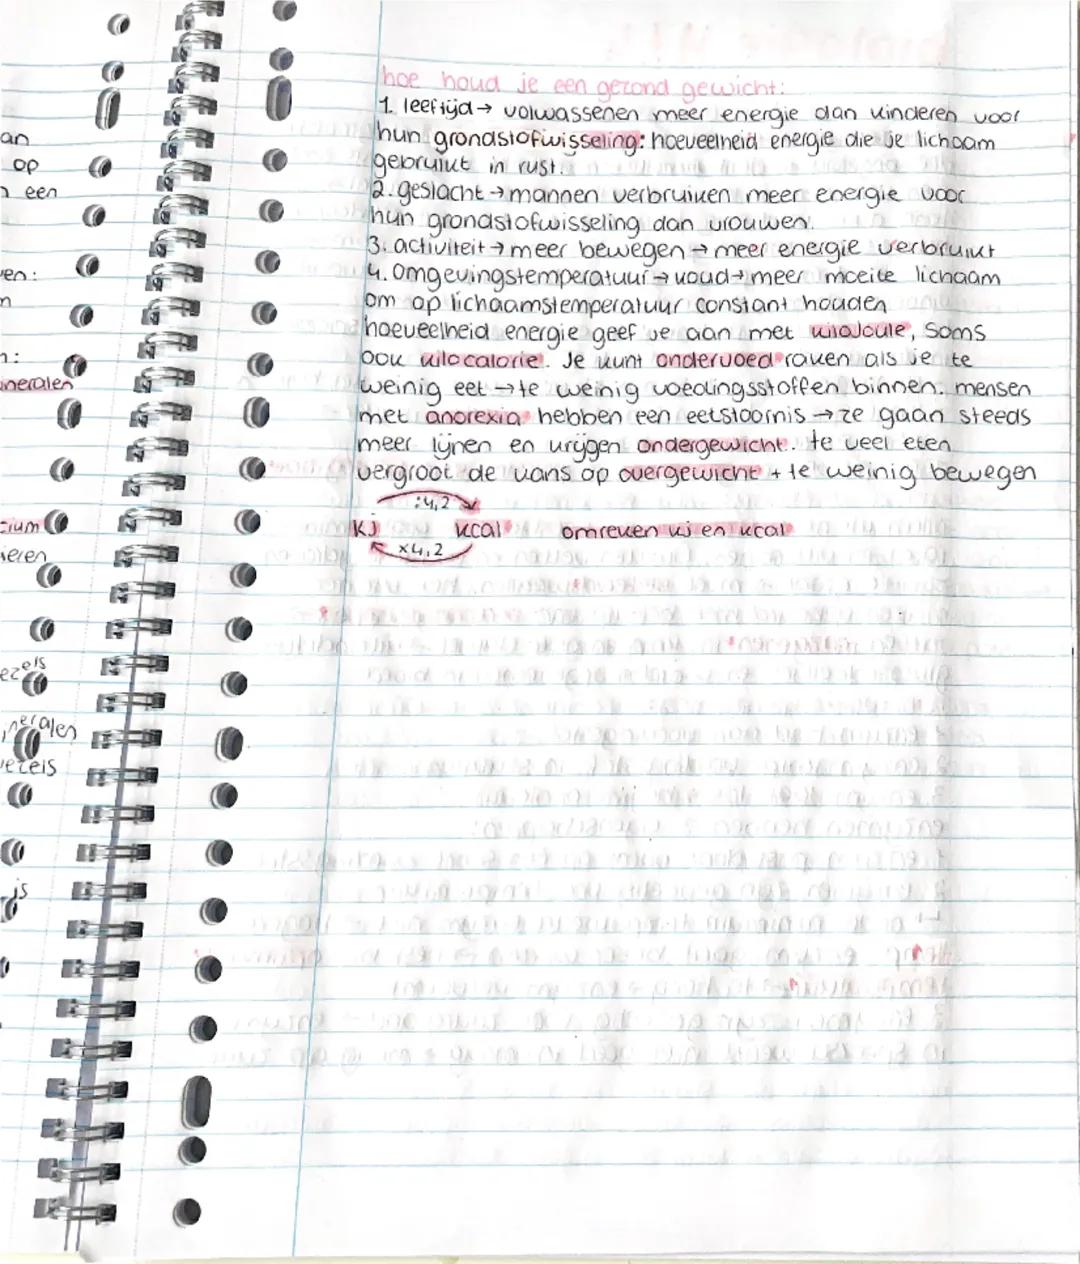 an
op
een
en:
n
n:
neralen
cium
ieren
ezels
neralen
ezels
is
hoe houd je een gezond gewicht:
1. leeftijd → volwassenen meer energie dan kinderen voor
hun grondstofwisseling: hoeveelheid energie die je lichaam
gebruikt in rust.
2. geslacht → mannen verbruiken meer energie voor
hun grondstofwisseling dan vrouwen.
3. activiteit → meer bewegen → meer energie verbruikt
4. omgevingstemperatuur → koud → meer moeite lichaam
om op lichaamstemperatuur constant houden
hoeveelheid energie geef je aan met kilojoule, soms
ook kilocalorie. Je kunt ondervoed raken als je te
weinig eet → te weinig voedingsstoffen binnen. mensen
met anorexia hebben een eetstoornis → ze gaan steeds
meer lijnen en krijgen ondergewicht. te veel eten
vergroot de kans op overgewicht + te weinig bewegen
:4,2
KJ kcal omreken kj en kcal
x4,2